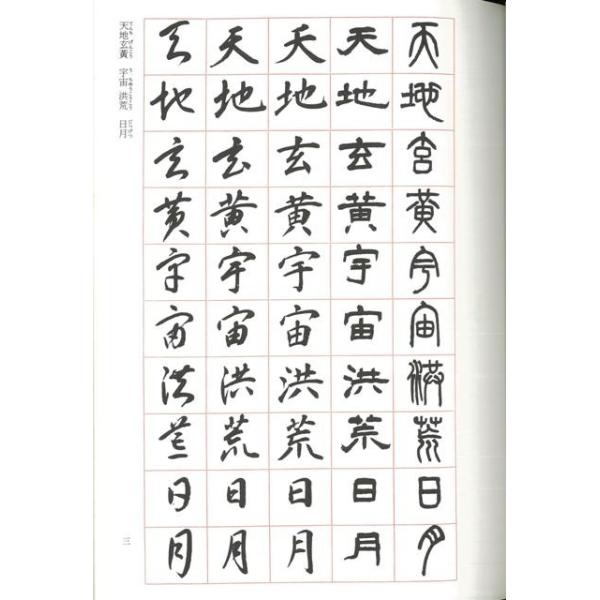 天地玄黄宇宙洪荒日月
天地玄黄宇宙洪荒日月
天地玄黄宇宙洪荒日月
天地玄黄宇宙洪荒日月
天地玄黄宇宙洪荒日月
天地玄黄 宇宙 洪荒 日月
三